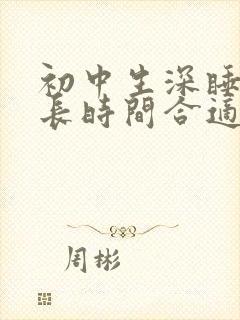 初中生深睡
長時間合適
周彬